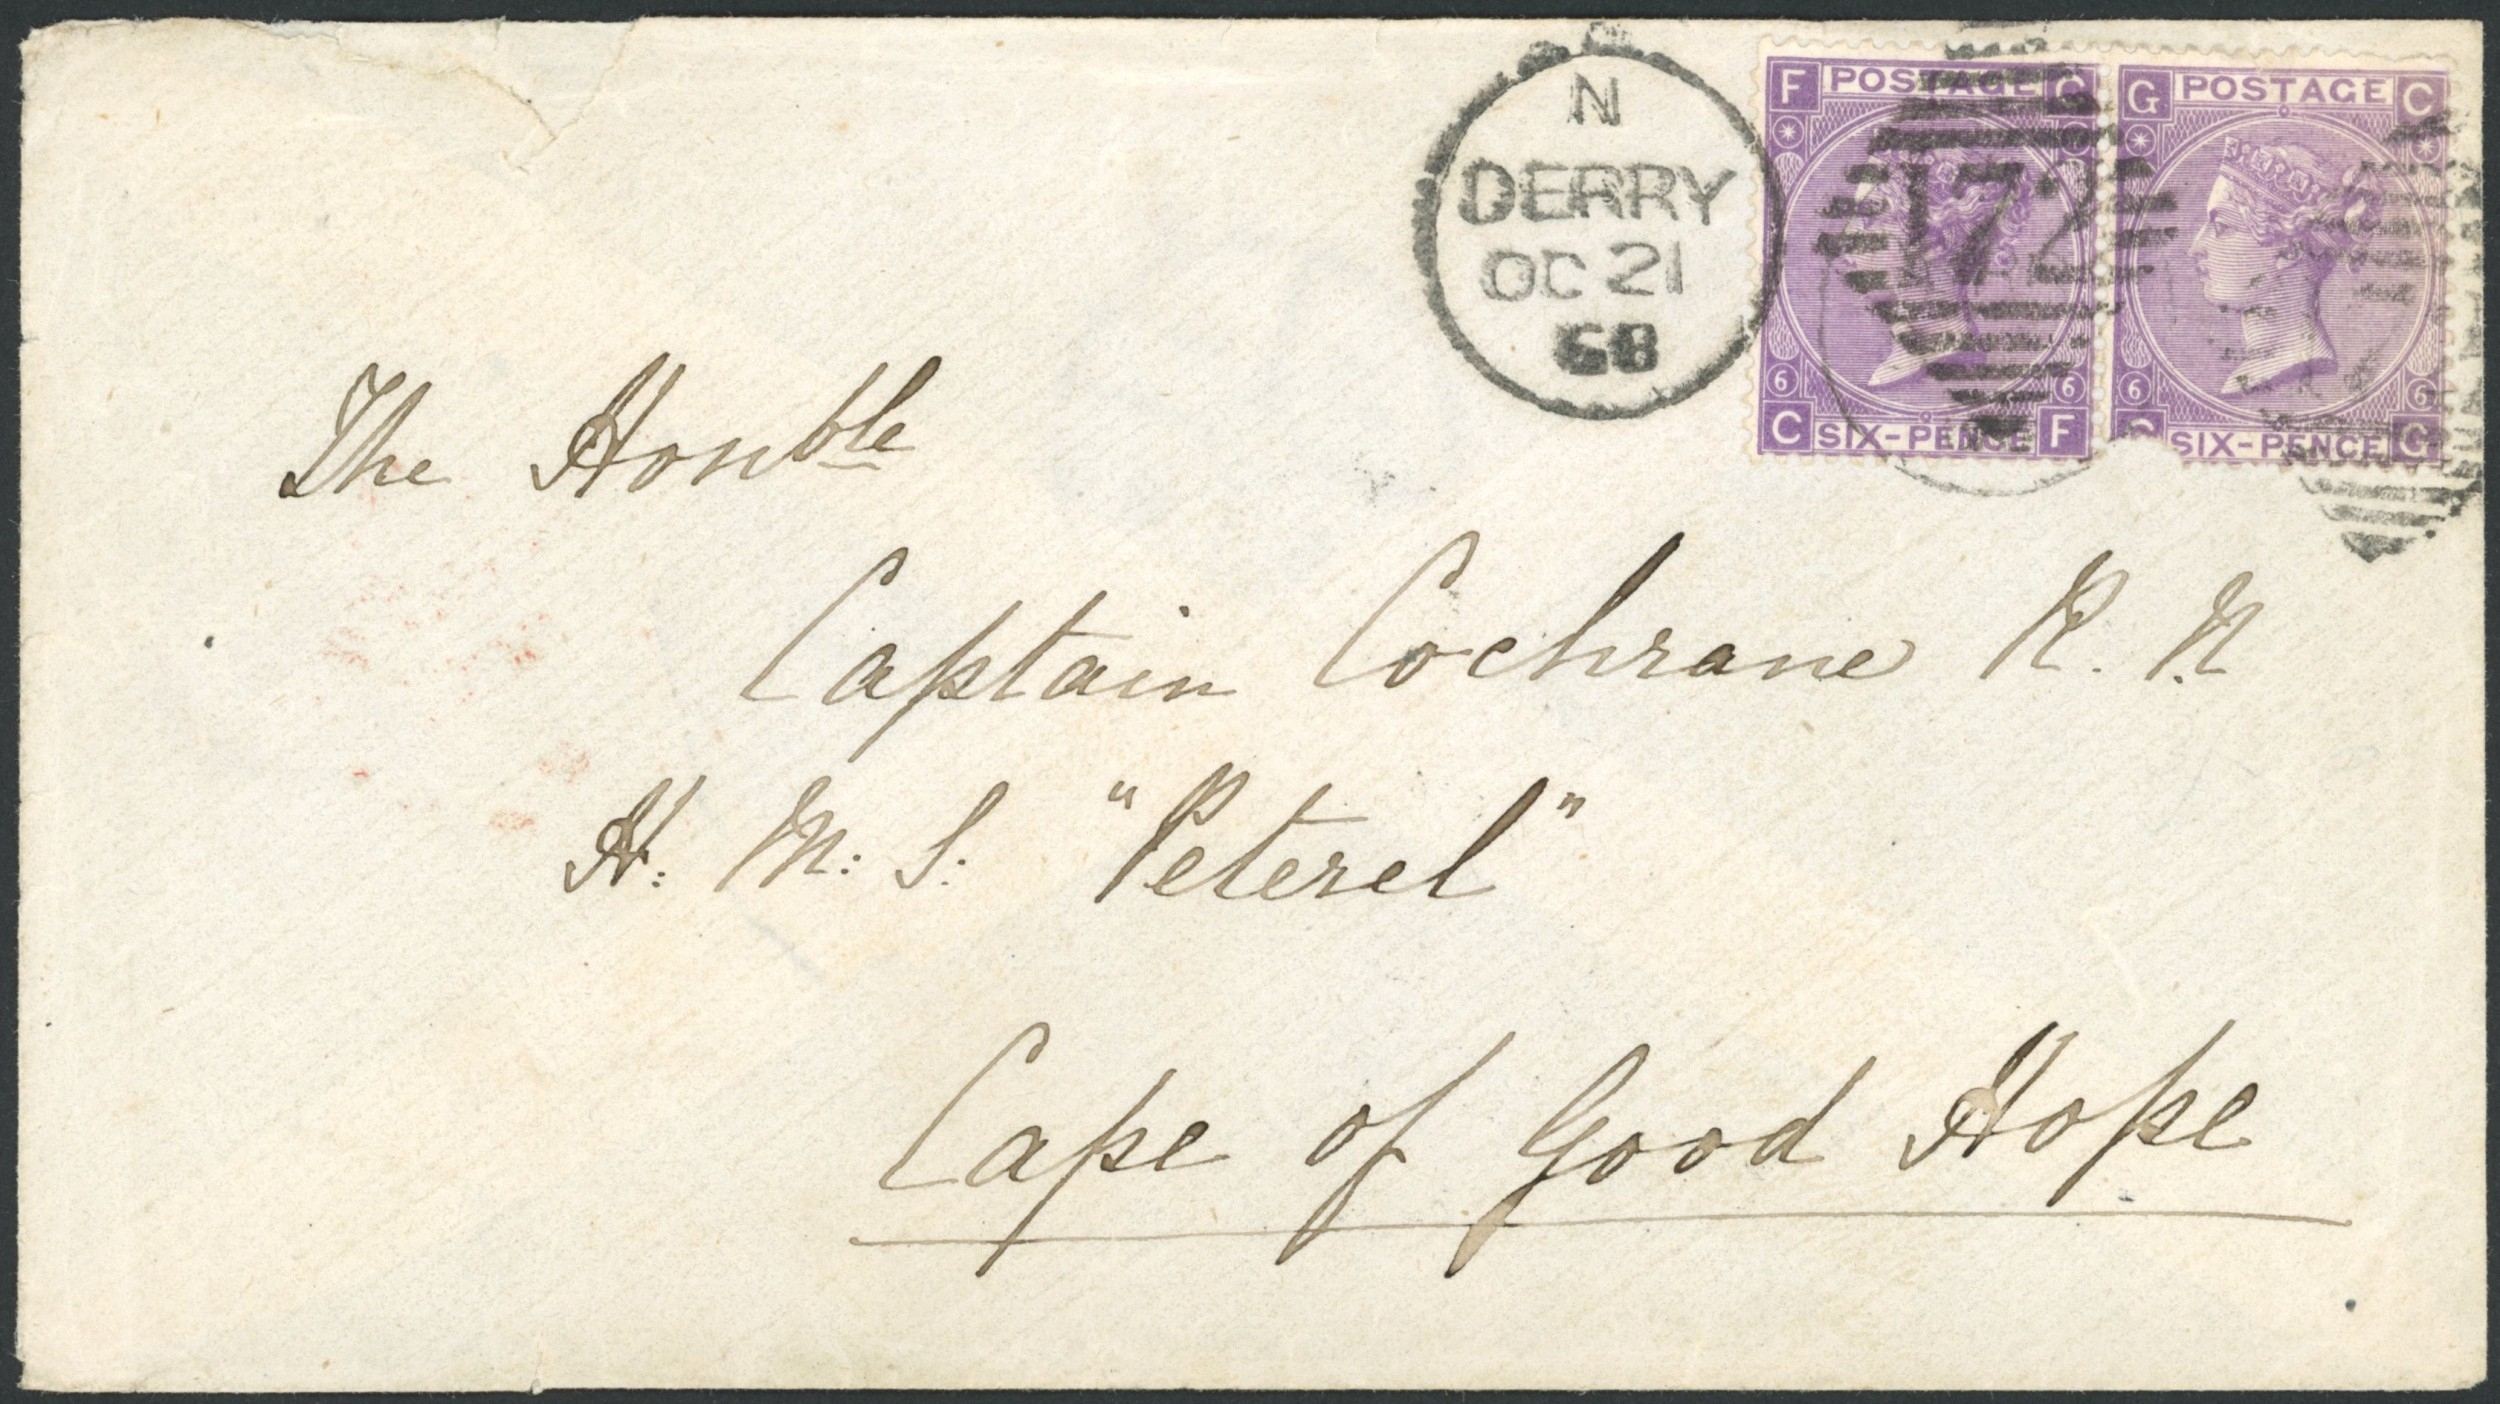 N
DERRY
OC 21
68
F POSTAGE C
6 6
C SIX-PENCE F
172
G POSTAGE C
6 6
SIX-PENCE G
The Honble
Captain Cochrane R. N
H: M: S. "Peterel"
Cape of Good Hope